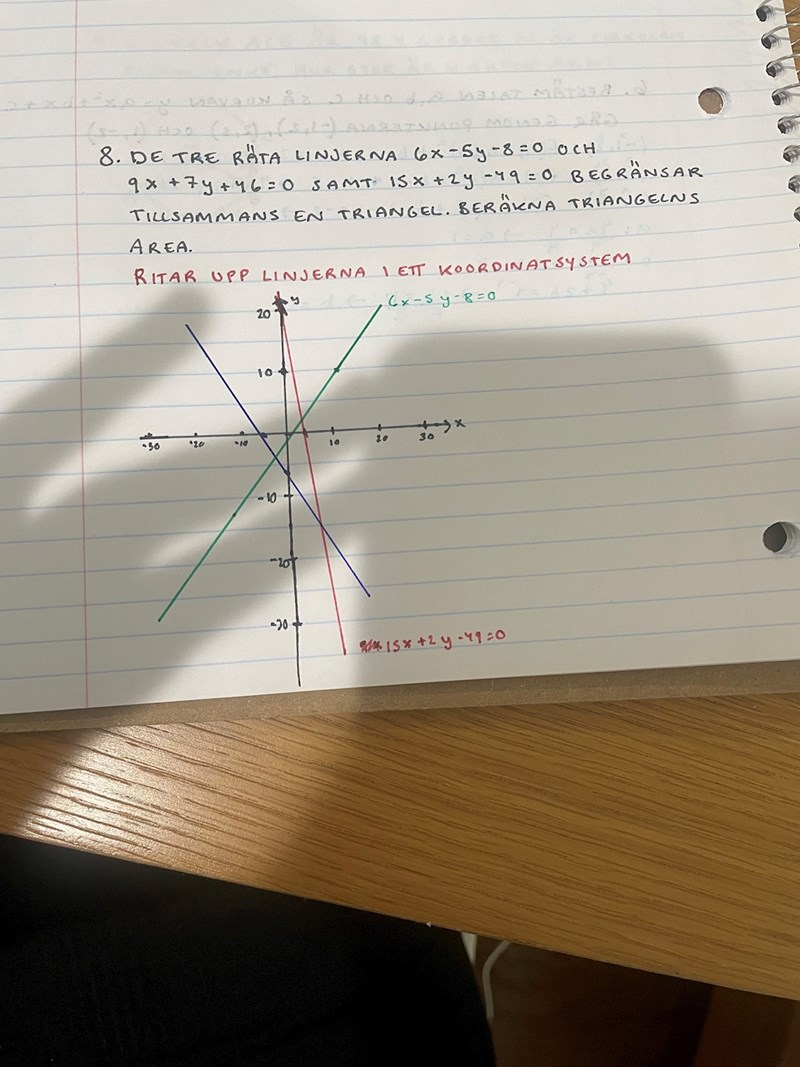 8. DE TRE RÄTA LINJERNA 6x-5y-8=0 OCH
9x+7y+46=0 SAMT 15x+2y-49=0 BEGRÄNSAR
TILLSAMMANS EN TRIANGEL. BERÄKNA TRIANGELNS
AREA.
RITAR UPP LINJERNA I ETT KOORDINATSYSTEM
y
6x-5y-8=0
20
10
x
-30 -20 -10 10 20 30
-10
-20
-30
15x+2y-49=0